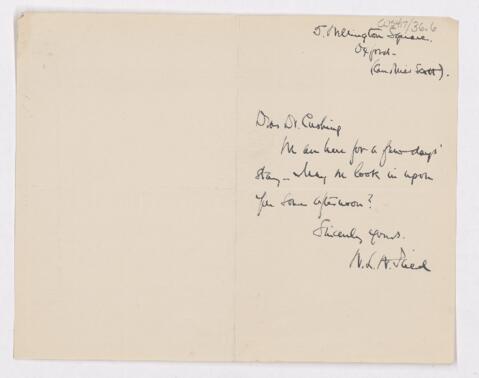 5. Wellington Square.
Oxford.
(Care Miss Scott).
Dear Dr. Cushing
We are here for a few days'
stay — May we look in upon
you some afternoon?
Sincerely yours.